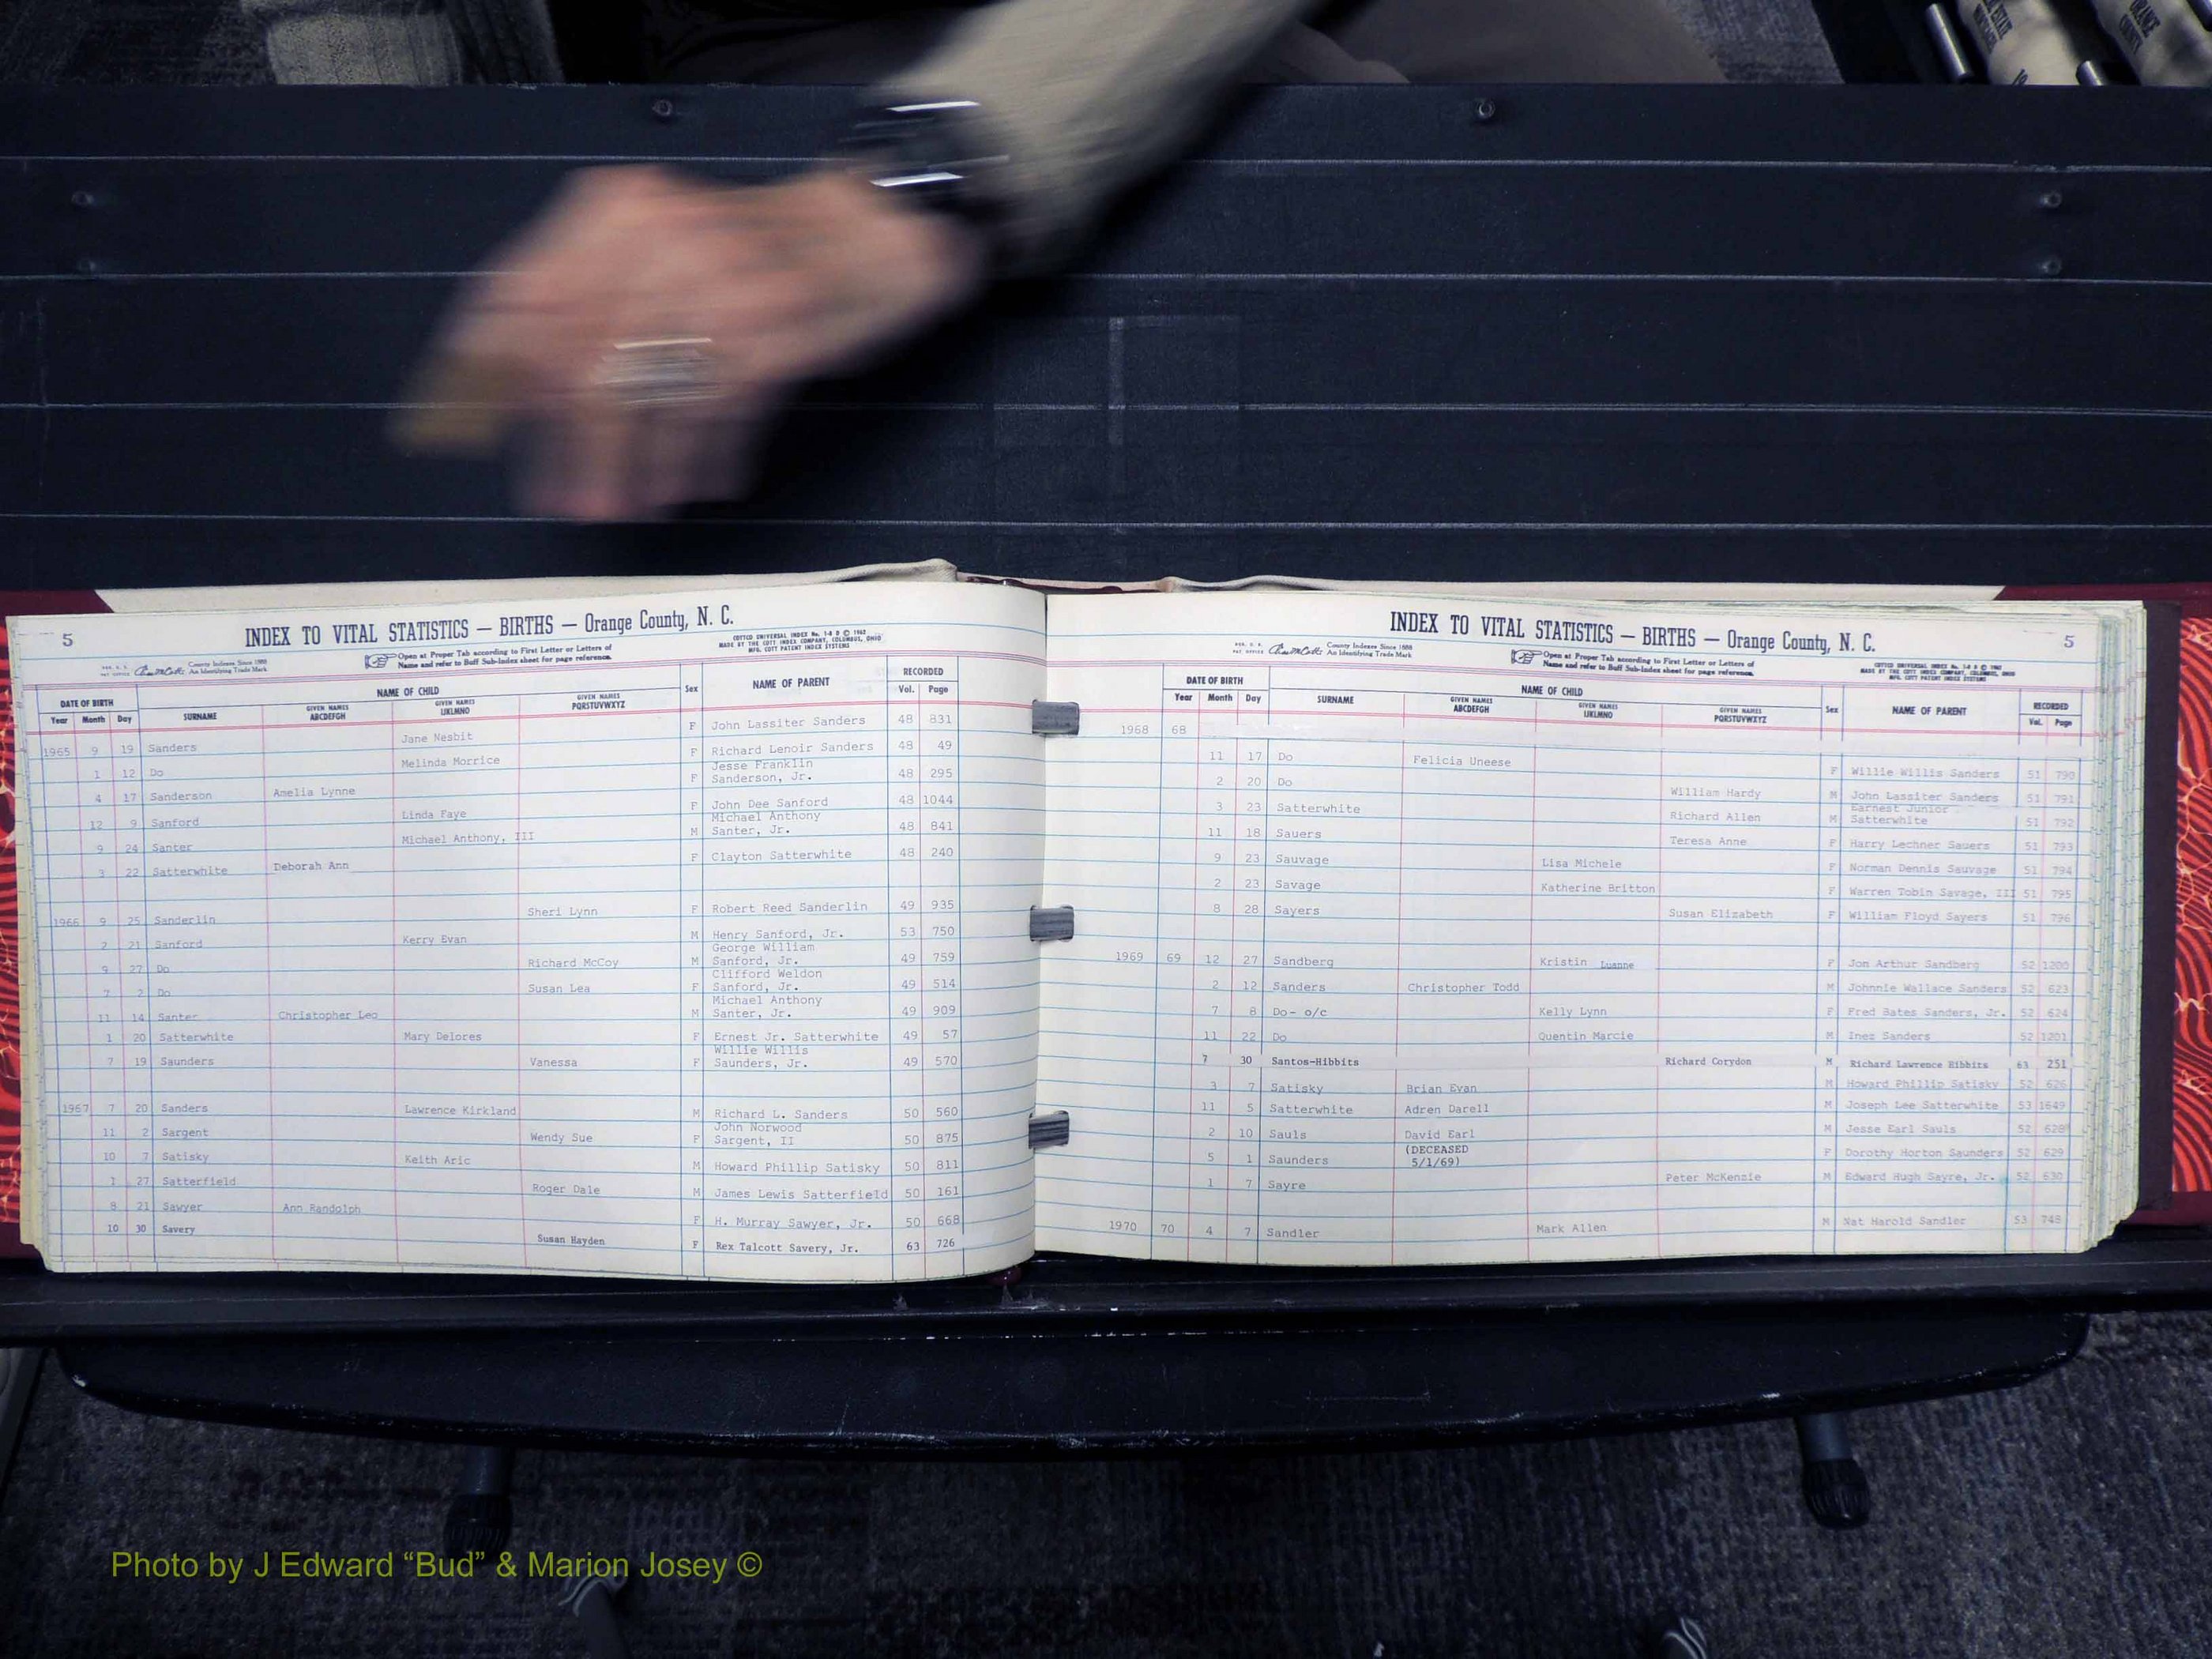 5
INDEX TO VITAL STATISTICS — BIRTHS — Orange County, N. C.
COTTCO UNIVERSAL INDEX No. 1-8 B © 1962
MADE BY THE COTT INDEX COMPANY, COLUMBUS, OHIO
MFG. COTT PATENT INDEX SYSTEMS
County Indexes Since 1888
An Identifying Trade Mark
Open at Proper Tab according to First Letter or Letters of
Name and refer to Buff Sub-Index sheet for page reference.
DATE OF BIRTH NAME OF CHILD Sex NAME OF PARENT RECORDED
Year Month Day SURNAME GIVEN NAMES ABCDEFGH GIVEN NAMES IJKLMNO GIVEN NAMES PQRSTUVWXYZ Vol. Page
1965 9 19 Sanders Jane Nesbit F John Lassiter Sanders 48 831
1 12 Do Melinda Morrice F Richard Lenoir Sanders 48 49
4 17 Sanderson Amelia Lynne F Jesse Franklin Sanderson, Jr. 48 295
12 9 Sanford Linda Faye F John Dee Sanford 48 1044
9 24 Santer Michael Anthony, III M Michael Anthony Santer, Jr. 48 841
3 22 Satterwhite Deborah Ann F Clayton Satterwhite 48 240
1966 9 25 Sanderlin Sheri Lynn F Robert Reed Sanderlin 49 935
2 21 Sanford Kerry Evan M Henry Sanford, Jr. 53 750
9 27 Do Richard McCoy M George William Sanford, Jr. 49 759
7 2 Do Susan Lea F Clifford Weldon Sanford, Jr. 49 514
11 14 Santer Christopher Leo M Michael Anthony Santer, Jr. 49 909
1 20 Satterwhite Mary Delores F Ernest Jr. Satterwhite 49 57
7 19 Saunders Vanessa F Willie Willis Saunders, Jr. 49 570
1967 7 20 Sanders Lawrence Kirkland M Richard L. Sanders 50 560
11 2 Sargent Wendy Sue F John Norwood Sargent, II 50 875
10 7 Satisky Keith Aric M Howard Phillip Satisky 50 811
1 27 Satterfield Roger Dale M James Lewis Satterfield 50 161
8 21 Sawyer Ann Randolph F H. Murray Sawyer, Jr. 50 668
10 30 Savery Susan Hayden F Rex Talcott Savery, Jr. 63 726
INDEX TO VITAL STATISTICS — BIRTHS — Orange County, N. C.
5
County Indexes Since 1888
An Identifying Trade Mark
Open at Proper Tab according to First Letter or Letters of
Name and refer to Buff Sub-Index sheet for page reference.
COTTCO UNIVERSAL INDEX No. 1-8 B © 1962
MADE BY THE COTT INDEX COMPANY, COLUMBUS, OHIO
MFG. COTT PATENT INDEX SYSTEMS
DATE OF BIRTH NAME OF CHILD Sex NAME OF PARENT RECORDED
Year Month Day SURNAME GIVEN NAMES ABCDEFGH GIVEN NAMES IJKLMNO GIVEN NAMES PQRSTUVWXYZ Vol. Page
1968 68
11 17 Do Felicia Uneese F Willie Willis Sanders 51 790
2 20 Do William Hardy M John Lassiter Sanders 51 791
3 23 Satterwhite Richard Allen M Earnest Junior Satterwhite 51 792
11 18 Sauers Teresa Anne F Harry Lechner Sauers 51 793
9 23 Sauvage Lisa Michele F Norman Dennis Sauvage 51 794
2 23 Savage Katherine Britton F Warren Tobin Savage, III 51 795
8 28 Sayers Susan Elizabeth F William Floyd Sayers 51 796
1969 69 12 27 Sandberg Kristin Luanne F Jon Arthur Sandberg 52 1200
2 12 Sanders Christopher Todd M Johnnie Wallace Sanders 52 623
7 8 Do- o/c Kelly Lynn F Fred Bates Sanders, Jr. 52 624
11 22 Do Quentin Marcie M Inez Sanders 52 1201
7 30 Santos-Hibbits Richard Corydon M Richard Lawrence Hibbits 63 251
3 7 Satisky Brian Evan M Howard Phillip Satisky 52 626
11 5 Satterwhite Adren Darell M Joseph Lee Satterwhite 53 1649
2 10 Sauls David Earl M Jesse Earl Sauls 52 628
5 1 Saunders (DECEASED 5/1/69) F Dorothy Horton Saunders 52 629
1 7 Sayre Peter McKenzie M Edward Hugh Sayre, Jr. 52 630
1970 70 4 7 Sandler Mark Allen M Nat Harold Sandler 53 748
Photo by J Edward “Bud” & Marion Josey ©